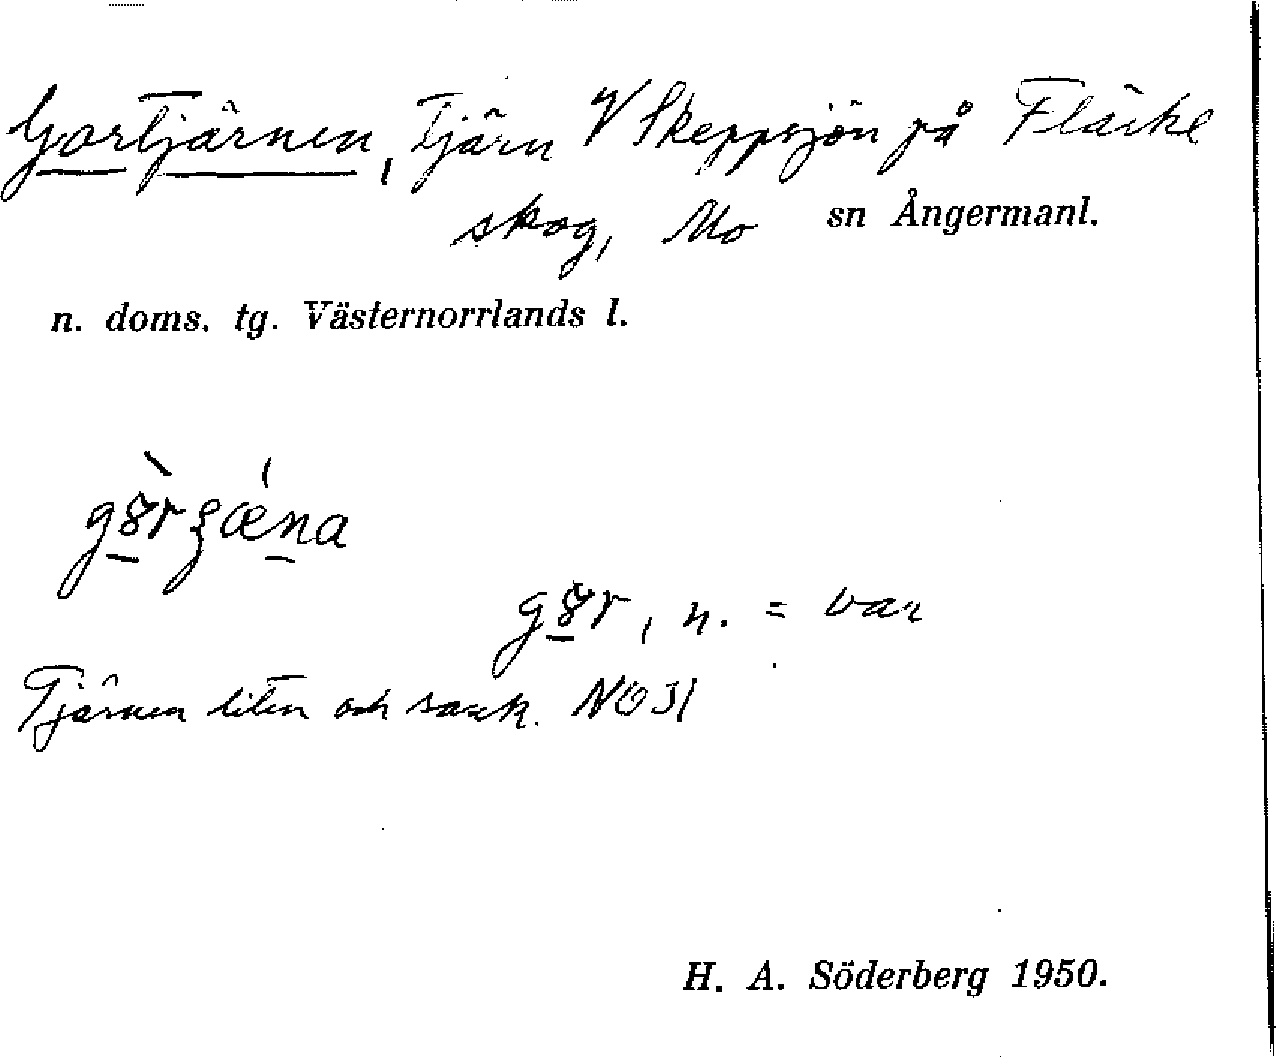 Gortjärnen, Tjärn V Skeppsjön på Fläcke
skog, Mo sn Ångermanl.
n. doms. tg. Västernorrlands l.
, n. = var
Tjärnen liten och sank.
H. A. Söderberg 1950.